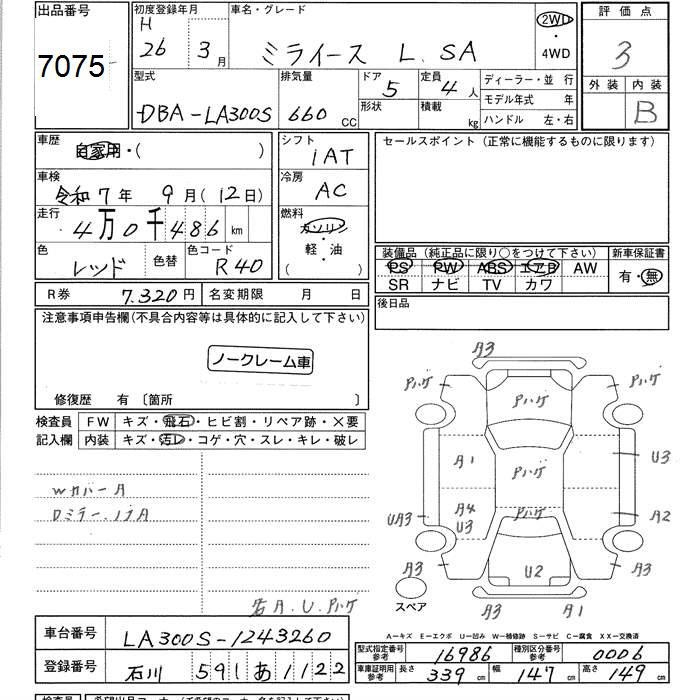 出品番号
7075
初度登録年月
H
26 3月
車名・グレード
ミライース L. SA
2WD
・
4WD
評価点
3
外装 内装
B
型式
DBA-LA300S
排気量
660 CC
ドア
5
形状
定員
4人
積載
kg
ディーラー・並 行
モデル年式 年
ハンドル 左・右
車歴
自家用・( )
車検
令和7年 9月(12日)
走行
4万0千486 km
色
レッド
色替
色コード
R40
シフト
IAT
冷房
AC
燃料
ガソリン
軽・油
( )
セールスポイント(正常に機能するものに限ります)
装備品(純正品に限り○をつけて下さい)
PS PW ABS エアB AW
SR ナビ TV カワ
新車保証書
有・無
R券 7.320円
名変期限 月 日
後日品
注意事項申告欄(不具合内容等は具体的に記入して下さい)
ノークレーム車
修復歴 有〔箇所 〕
検査員
記入欄
FW キズ・飛石・ヒビ割・リペア跡・×要
内装 キズ・汚レ・コゲ・穴・スレ・キレ・破レ
Wカバー A
Dミラー.リA
右A.U.Pハゲ
A3
Pハゲ
Pハゲ
Pハゲ
A1
Pハゲ
U3
A4
U3
Pハゲ
A2
UA3
A3
U2
A3
A3
A1
スペア
A-キズ E-エクボ U-凹み W-補修跡 S-サビ C-腐食 XX-交換済
車台番号
LA300S-1243260
登録番号
石川 591 あ1122
型式指定番号
参考
16986
種別区分番号
参考
0006
車庫証明用
参考
長さ
339 cm
幅
147 cm
高さ
149 cm